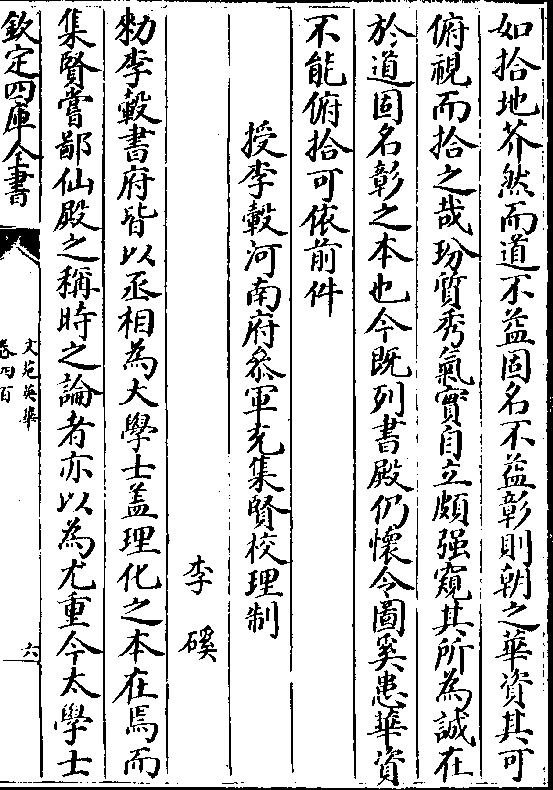 如拾地芥然而道不益固名不益彰則朝之華資其可
俯視而拾之哉玢質秀氣實自立頗强窺其所為誠在
於道固名彰之本也今既列書殿仍懷令圖奚患華資
不能俯拾可依前件
授李瑴河南府叅軍充集賢校理制
李磎
勅李瑴書府皆以丞相為大學士盖理化之本在焉而
集賢嘗鄙仙殿之稱時之論者亦以為尤重今太學士
欽定四庫全書
文苑英華
卷四百
六